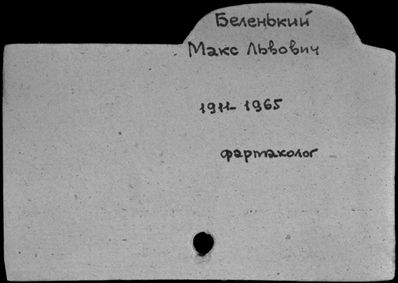 Беленький
Макс Львович
1911-1965
фармаколог